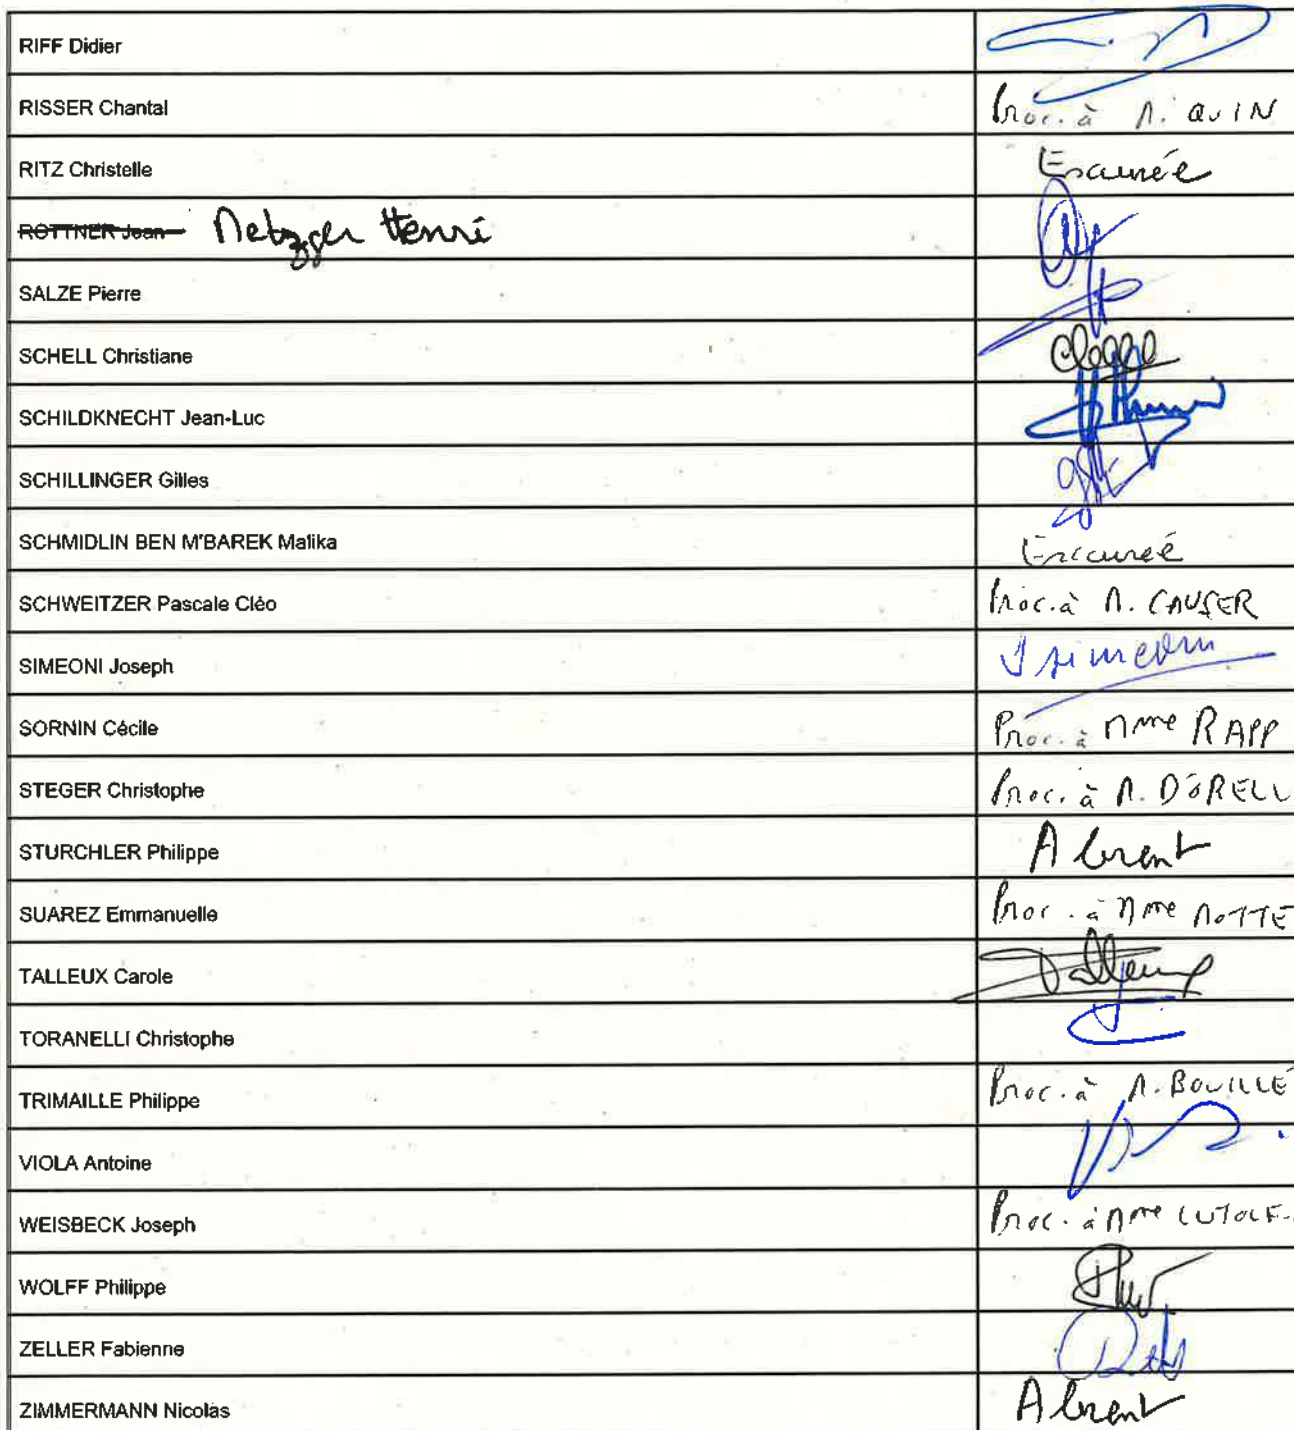 RIFF Didier
RISSER Chantal Proc. à M. QUIN
RITZ Christelle Excusée
ROTTNER Jean Metzger Henri
SALZE Pierre
SCHELL Christiane
SCHILDKNECHT Jean-Luc
SCHILLINGER Gilles
SCHMIDLIN BEN M'BAREK Malika Excusée
SCHWEITZER Pascale Cléo Proc. à M. CAUSER
SIMEONI Joseph J Simeoni
SORNIN Cécile Proc. à Mme RAPP
STEGER Christophe Proc. à M. DÖRELL
STURCHLER Philippe Absent
SUAREZ Emmanuelle Proc. à Mme MOTTE
TALLEUX Carole Talleux
TORANELLI Christophe
TRIMAILLE Philippe Proc. à M. BOUILLÉ
VIOLA Antoine
WEISBECK Joseph Proc. à Mme LUTOLF-
WOLFF Philippe
ZELLER Fabienne
ZIMMERMANN Nicolas Absent